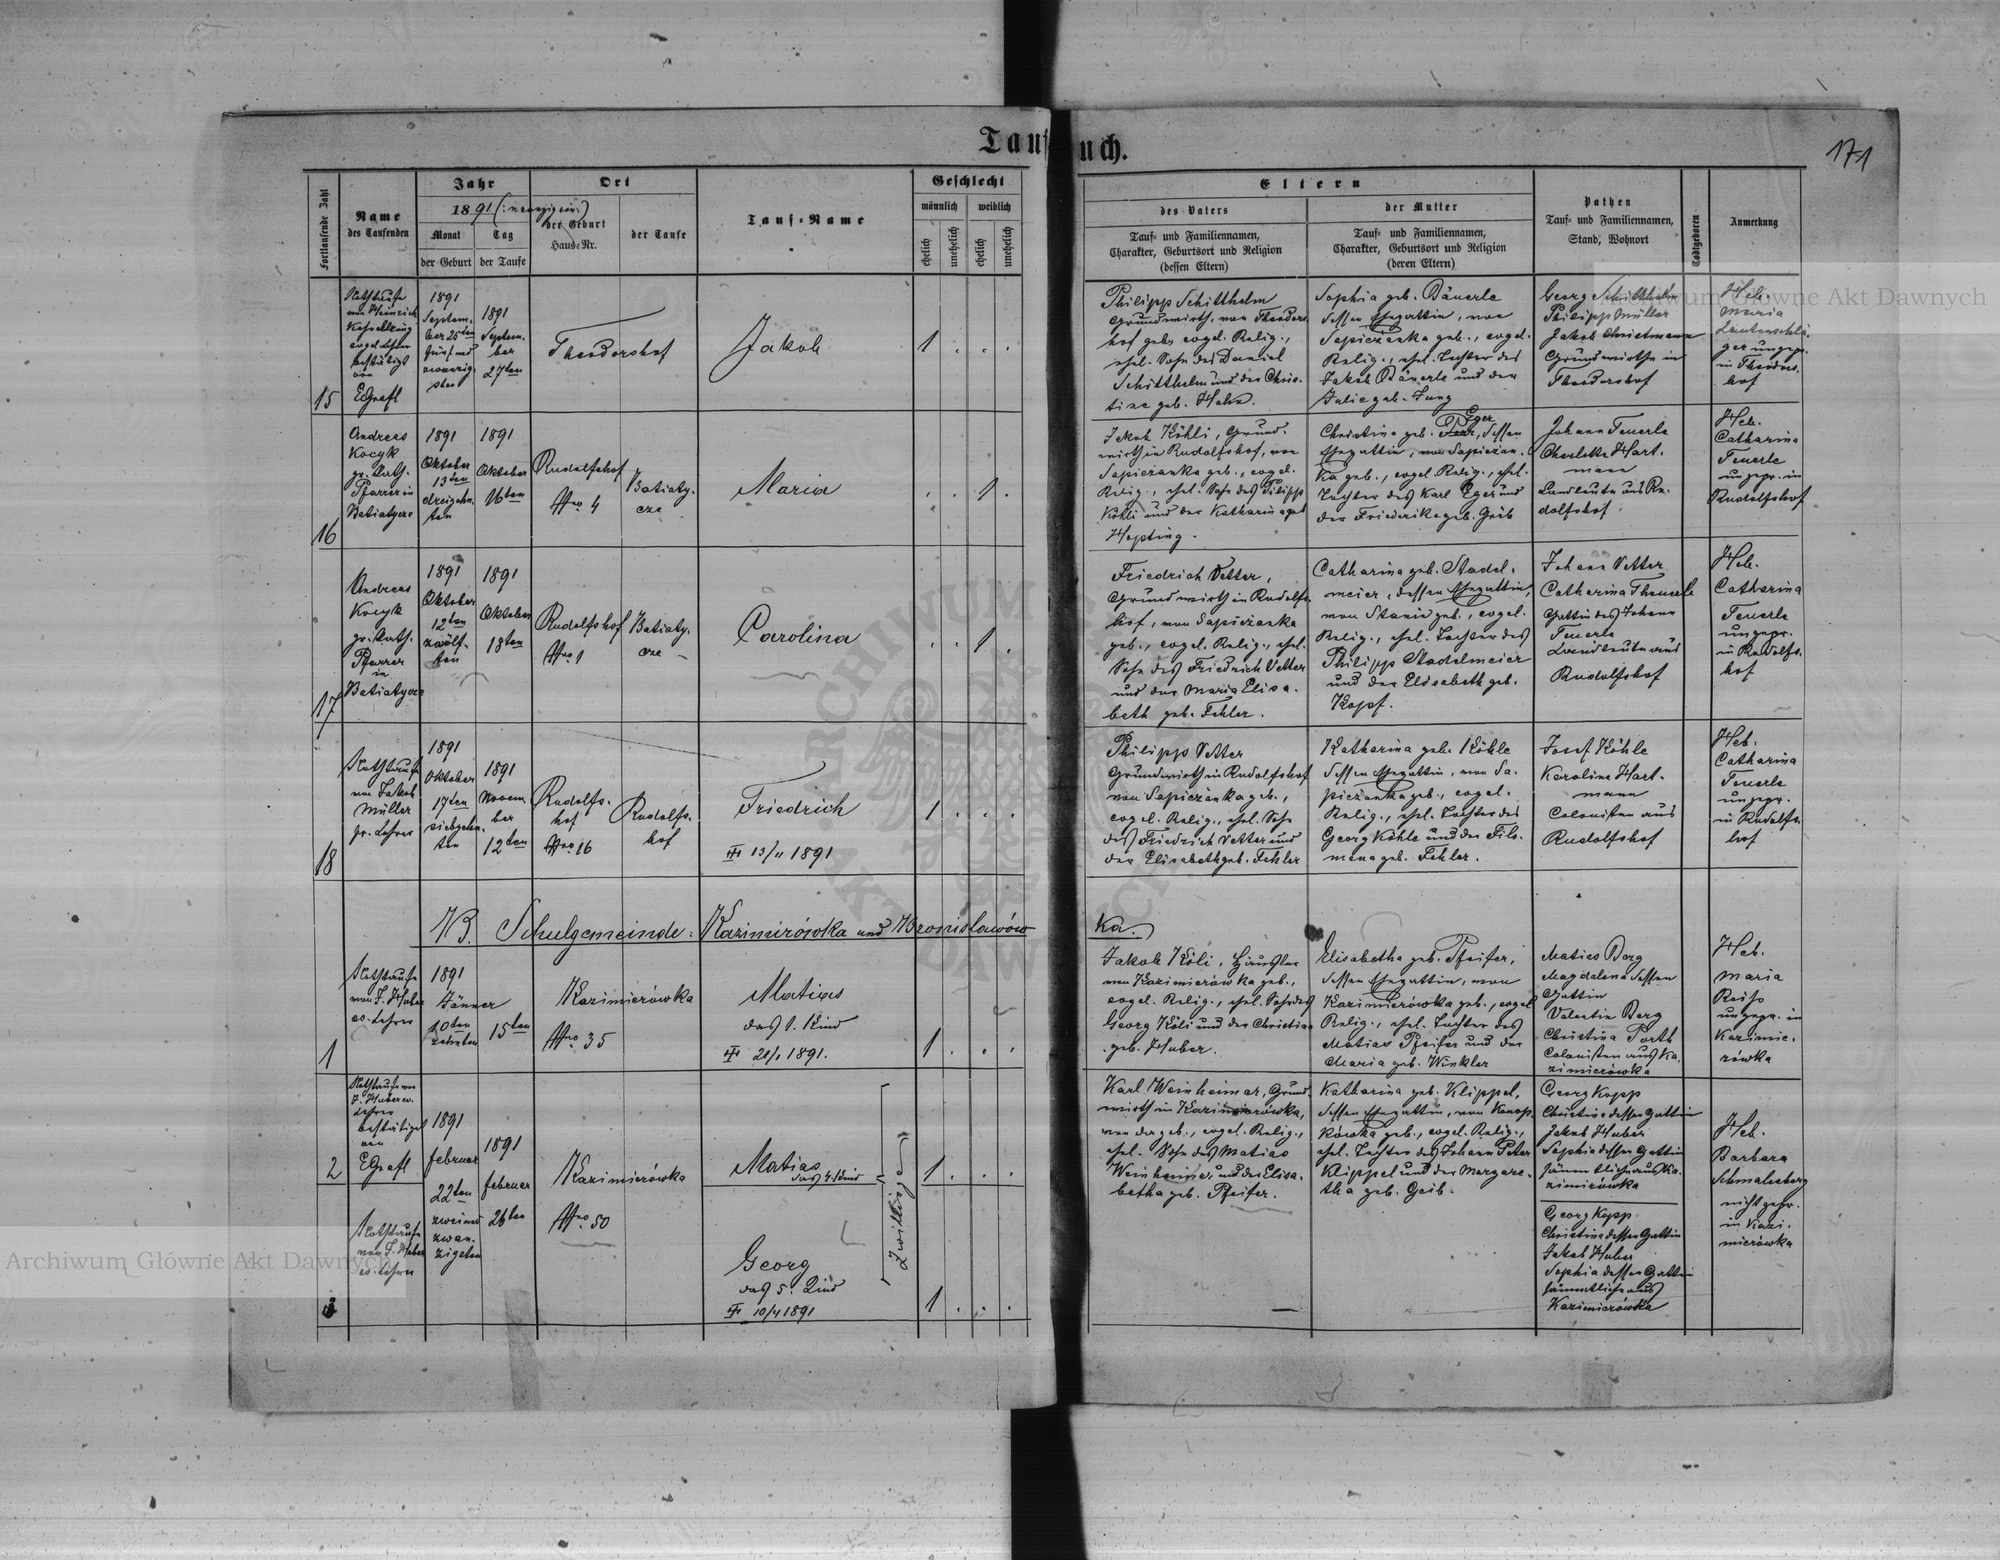 Taufbuch.
171
Fortlaufende Zahl
Name
des Taufenden
Jahr
1891 (:neunzigein:)
Monat
Tag
der Geburt
der Taufe
Ort
der Geburt
Haus-Nr.
der Taufe
Tauf-Name
Geschlecht
männlich
weiblich
ehelich
unehelich
ehelich
unehelich
Eltern
des Vaters
Tauf- und Familiennamen,
Charakter, Geburtsort und Religion
(dessen Eltern)
der Mutter
Tauf- und Familiennamen,
Charakter, Geburtsort und Religion
(deren Eltern)
Pathen
Tauf- und Familiennamen,
Stand, Wohnort
Todtgeboren
Anmerkung
15
Nothtaufe
von Heinrich
Kesselring
evgel Lehrer
bestätigt
von
EGrafl
1891
Septem-
ber 25ten
fünf und
zwanzig-
sten
1891
Septem-
ber
27ten
Theodorshof
Jakob
1 . . .
Philipp Schitthelm
Grundwirth, von Theodors-
hof geb. evgel. Relig.,
ehel. Sohn des Daniel
Schitthelm und der Chris-
tine geb. Hahn.
Sophia geb. Bäuerle
dessen Ehegattin, von
Sapiezanka geb., evgel.
Relig., ehel. Tochter des
Jakob Bäuerle und der
Julie geb. Jung
Georg Schitthelm
Philipp Müller
Jakob Christmann
Grundwirthe in
Theodorshof
Heb.
Maria
Lautenschlä-
ger ungepr.
in Theodors-
hof
16
Andreas
Kocyk
gr. kath.
Pfarrer in
Batiatycze
1891
Oktober
13ten
dreizehn-
ten
1891
Oktober
16ten
Rudolfshof
Nro 4
Batiaty-
cze
Maria
. . 1 .
Jakob Köhli, Grund-
wirth in Rudolfshof, von
Sapiezanka geb., evgel.
Relig., ehel. Sohn des Filipp
Köhli und der Katharina geb
Hepting.
Eger
Christina geb. , dessen
Ehegattin, von Sapiezan-
ka geb., evgel Relig., ehel.
Tochter des Karl Eger und
der Friederike geb. Greib
Johann Feuerle
Charlotte Hart-
mann
Landleute aus Ru-
dolfshof
Heb.
Catharina
Feuerle
ungepr. in
Rudolfshof
17
Andreas
Kocyk
gr. kath.
Pfarrer
in
Batiatycze
1891
Oktober
12ten
zwölf-
ten
1891
Oktober
18ten
Rudolfshof
Nro 1
Batiaty-
cze
Carolina
. . 1 .
Friedrich Vetter,
Grundwirth in Rudolfs-
hof, von Sapiezanka
geb., evgel. Relig., ehel.
Sohn des Friedrich Vetter
und der Maria Elisa-
beth geb. Fehler.
Catharina geb. Stadel-
meier, dessen Ehegattin,
von Stanin geb., evgel.
Relig., ehel. Tochter des
Philipp Stadelmeier
und der Elisabeth geb.
Kopf.
Johann Vetter
Catharina Theuerle
Gattin des Johann
Feuerle
Landleute aus
Rudolfshof
Heb.
Catharina
Feuerle
ungepr.
in Rudolfs-
hof
18
Nothtaufe
von Jakob
Müller
pr. Lehrer
1891
Oktober
17ten
siebzehn-
ten
1891
Novem-
ber
12ten
Rudolfs-
hof
Nro 16
Rudolfs-
hof
Friedrich
13/11 1891
1 . . .
Philipp Vetter
Grundwirth in Rudolfshof
von Sapiezanka geb.,
evgel. Relig., ehel. Sohn
des Friedrich Vetter und
der Elisabeth geb. Fehler
Katharina geb. Köhle
dessen Ehegattin, von Sa-
piezanka geb., evgel.
Relig., ehel. Tochter des
Georg Köhle und der Filo-
mena geb. Fehler.
Josef Köhle
Karolina Hart-
mann
Colonisten aus
Rudolfshof
Heb.
Catharina
Feuerle
ungepr.
in Rudolfs-
hof
NB. Schulgemeinde: Kazimirówka und Bronisławówka.
1
Nothtaufe
von J. Huber
ev. Lehrer
1891
Jänner
10ten
zehnten
15ten
Kazimierówka
Nro. 35
Matias
das 1. Kind
21/1 1891.
1 . . .
Jakob Köli, Häusler
von Kazimierówka geb.,
evgel. Relig., ehel. Sohn des
Georg Köli und der Christina
geb. Huber.
Elisabetha geb. Pfeifer,
dessen Ehegattin, von
Kazimierówka geb., evgel
Relig., ehel. Tochter des
Matias Pfeifer und der
Maria geb. Winkler
Matias Berg
Magdalena dessen
Gattin
Valentin Berg
Christina Porth
Colonisten aus Ka-
zimierówka
Heb.
Maria
Reiss
ungepr. in
Kazimie-
rówka
2
Nothtaufe von
J. Huber ev.
Lehrer
bestätigt
von
EGrafl
1891
februar
22ten
zweiund
zwan-
zigsten
1891
februar
26ten
Kazimierówka
Nro. 50
Matias
das 4. Kind
Zwillinge
1 . . .
Karl Weinheimer, Grund-
wirth in Kazimierówka,
von da geb., evgel. Relig.,
ehel. Sohn des Matias
Weinheimer und der Elisa-
betha geb. Pfeifer.
Katharina geb. Klippel,
dessen Ehegattin, von Konop-
kówka geb., evgel. Relig.,
ehel. Tochter des Johann Peter
Klippel und der Margare-
tha geb. Geib.
Georg Kopp
Christine dessen Gattin
Jakob Huber
Sophia dessen Gattin
sämmtliche aus Ka-
zimirówka
Heb.
Barbara
Schmalenberg
nicht gepr.
in Kazi-
mierówka
3
Nothtaufe
von J. Huber
ev. Lehrer
Georg
das 5. Kind
10/4 1891
1 . . .
Georg Kopp
Christina dessen Gattin
Jakob Huber
Sophia dessen Gattin
sämmtliche aus
Kazimierówka
Archiwum Główne Akt Dawnych
Archiwum Główne Akt Dawnych